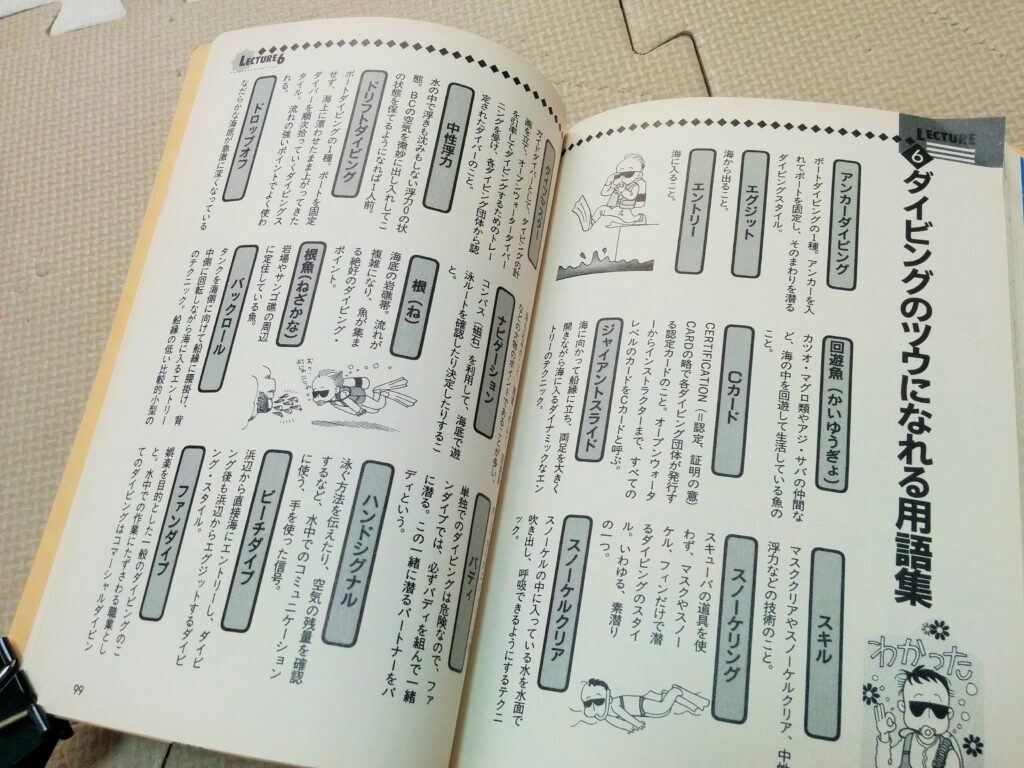 LECTURE
❻ダイビングのツウになれる用語集
アンカーダイビング
ボートダイビングの1種。アンカーを入
れてボートを固定し、そのまわりを潜る
ダイビングスタイル。
エグジット
海から出ること。
エントリー
海に入ること。
回遊魚（かいゆうぎょ）
カツオ・マグロ類やアジ・サバの仲間な
ど、海の中を回遊して生活している魚の
こと。
Cカード
CERTIFICATION（＝認定、証明の意）
CARDの略で各ダイビング団体が発行す
る認定カードのこと。オープンウォータ
ーからインストラクターまで、すべての
レベルのカードをCカードと呼ぶ。
ジャイアントスライド
海に向かって船縁に立ち、両足を大きく
開きながら海に入るダイナミックなエン
トリーのテクニック。
スキル
マスククリアやスノーケルクリア、中性
浮力などの技術のこと。
スノーケリング
スキューバの道具を使
わず、マスクやスノー
ケル、フィンだけで潜
るダイビングのスタイ
ル。いわゆる、素潜り
の一つ。
スノーケルクリア
スノーケルの中に入っている水を水面で
吹き出し、呼吸できるようにするテクニ
ック。
わかった
LECTURE 6
ガイドダイバーとして、ダイビングの計
画を立て、オープンウォーターダイバー
を引率してダイビングするためのトレー
ニングを受け、各ダイビング団体から認
定されたダイバーのこと。
中性浮力
水の中で浮きも沈みもしない浮力0の状
態。BCの空気を微妙に出し入れしてこ
の状態を保てるようになれば1人前。
ドリフトダイビング
ボートダイビングの1種。ボートを固定
せず、海上に漂わせたまま上がってきた
ダイバーを順次拾っていくダイビングス
タイル。流れの強いポイントでよく使わ
れる。
ドロップオフ
なだらかな海底が急激に深くなっている
ナビゲーション
コンパス（磁石）を利用して、海底で遊
泳ルートを確認したり決定したりするこ
と。
根（ね）
海底の岩礁帯。流れが
複雑になり、魚が集ま
る絶好のダイビング・
ポイント。
根魚（ねざかな）
岩場やサンゴ礁の周辺
に定住している魚。
バックロール
タンクを海側に向けて船縁に腰掛け、背
中側に回転しながら海に入るエントリー
のテクニック。船縁の低い比較的小型の
バディ
単独でのダイビングは危険なので、ファ
ンダイブでは、必ずバディを組んで一緒
に潜る。この一緒に潜るパートナーをバ
ディという。
ハンドシグナル
泳ぐ方法を伝えたり、空気の残量を確認
するなど、水中でのコミュニケーション
に使う、手を使った信号。
ビーチダイブ
浜辺から直接海にエントリーし、ダイビ
ング後も浜辺からエグジットするダイビ
ング・スタイル。
ファンダイブ
娯楽を目的とした一般のダイビングのこ
と。水中での作業にたずさわる職業とし
てのダイビングはコマーシャルダイビン
99